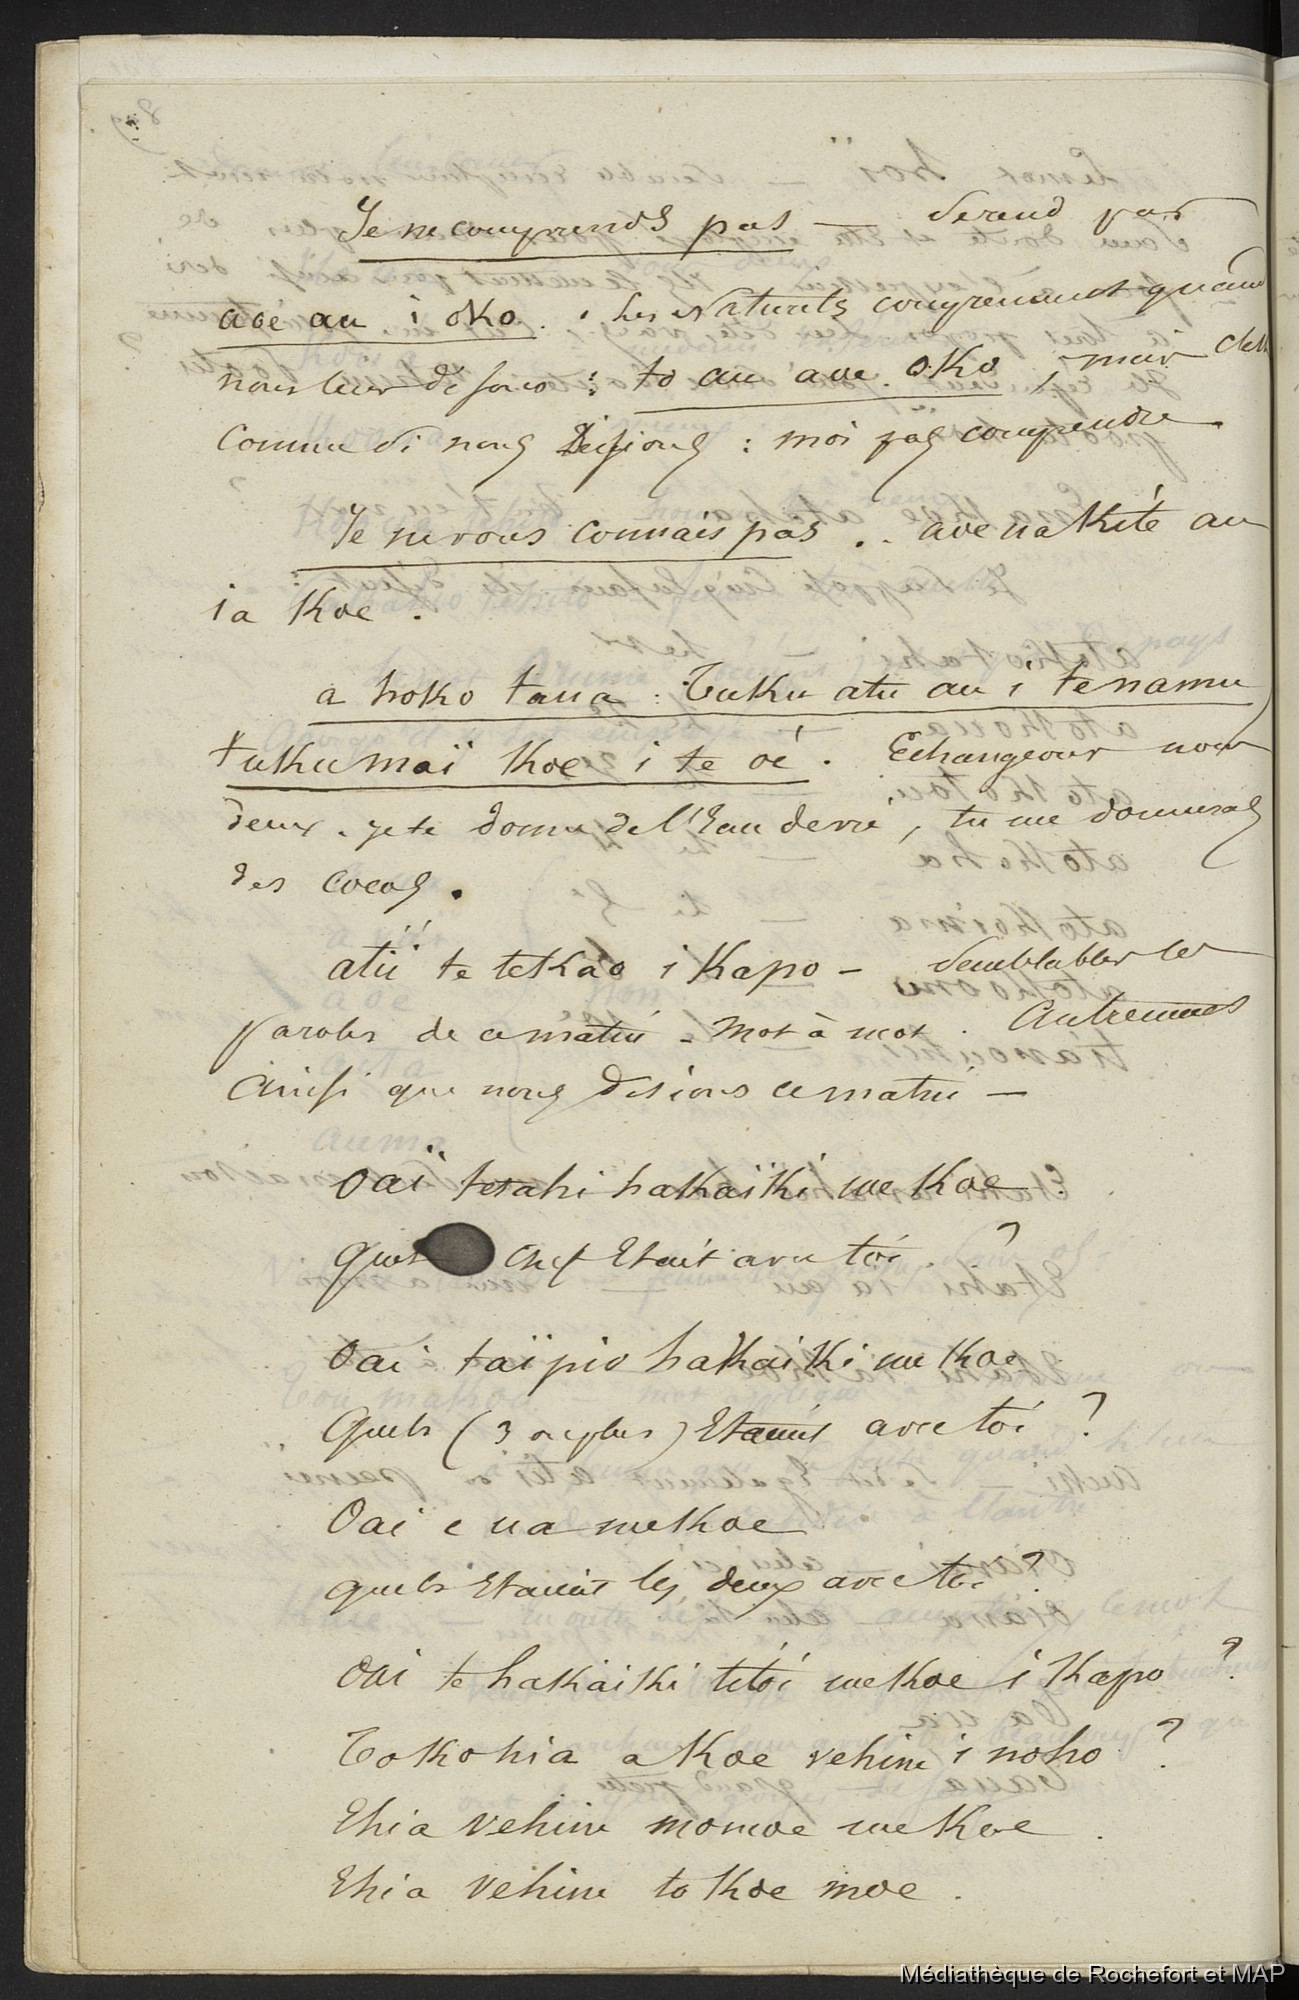 Je ne comprends pas — Se rend par
aoe au i oko. Les Naturels comprennent quand
nous leur disons : to au aoe oko, mais c'est
comme si nous disions : moi pas comprendre.
Je ne vous connais pas .. aoe na Kité au
ia Koe.
a hoko taua : Tuku atu au i te namu
tuku maï Koe i te oé. Echangeons nous
deux. je te donne de l'Eau de vie, tu me donneras
des cocos.
atii te teKao i Kapo — Semblables les
paroles de ce matin. Mot à mot. Autrement
Ainsi que nous disions ce matin —
Oaï te tahi hakaïki me Koe.
Quel chef Etait avec toi ?
Oai taïpio hakaiki me Koe
Quels (3 ou plus) Etaient avec toi ?
Oai e ua me Koe
quels Etaient les deux avec toi ?
Oai te hakaiki titoi me Koe i Kapo ?
Tokohia a Koe vehine i noho ?
Ehia vehine momoe me Koe.
Ehia Vehine to Koe moe.
Médiathèque de Rochefort et MAP